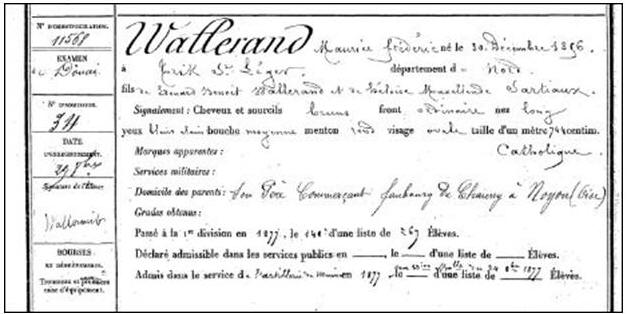 N° D'IMMATRICULATION.
11568
EXAMEN
de Douai
N° D'ORDRE
34
DATE
D'ENREGISTREMENT.
29 8bre
Signature de l'Élève
Wallerand
BOURSES
ET DÉGRÈVEMENTS.
Trousseau et première mise d'équipement.
Wallerand Maurice Frédéric né le 30 Décembre 1856.
à St Léger département d Nord
fils de Edouard Benoit Wallerand et de Sartiaux.
Signalement : Cheveux et sourcils bruns front ordinaire nez long
yeux bleus clairs bouche moyenne menton rond visage ovale taille d'un mètre 744 centim.
Marques apparentes : Catholique
Services militaires :
Domicile des parents : Son Père Commerçant faubourg de Chauny à Noyon (Oise)
Grades obtenus :
Passé à la 1re division en 1877, le 148e d'une liste de 267 Élèves.
Déclaré admissible dans les services publics en , le d'une liste de Élèves.
Admis dans le service d l'artillerie de marine en 1877 le d'une liste de Élèves.
24 8bre 1877